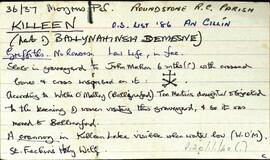 36/37 Moyrus Psh. ROUNDSTONE R.C. PARISH
KILLEEN O.S. LIST '86 AN CILLÍN
(Not () BALLYNAHINCH DEMESNE)
Griffiths - No Rowan Law Life, in fee.
Slab in graveyard to John Mahon 6 mths(?) with crossed
bones & cross inscribed on it.
According to Willie O'Malley (Ballynafad) Tom Martin's daughter objected
to the keening of women visiting this graveyard, & so it was
moved to Ballinafad.
A crannóg in Killeen Lake visible when water low (W.O'M)
St. Feichins Holy Well.